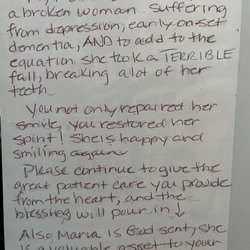 a broken woman suffering
from depression, early onset
dementia, AND to add to the
equation she took a TERRIBLE
fall, breaking alot of her
teeth.
You not only repaired her
smile, you restored her
spirit! She is happy and
smiling again.
Please continue to give the
great patient care you provide
from the heart, and the
blessing will pour in ↓
Also Maria is God sent, she
is a valuable asset to your